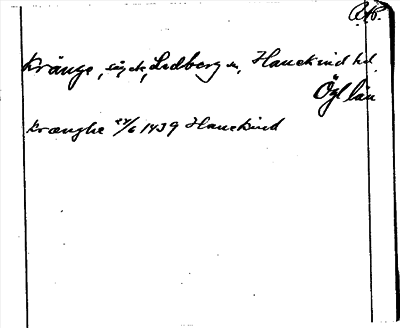 Kränge, Ledberg sn, Hanekind hd
Ögl län
Krænghe 24/6 1439 Hanekind